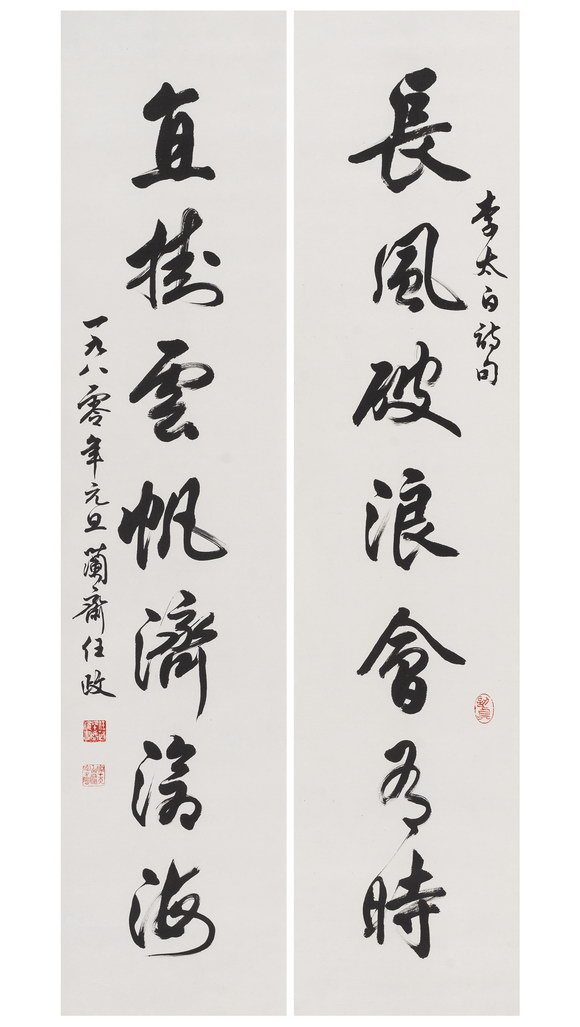 李太白詩句
長風破浪會有時
直掛雲帆濟滄海
一九八零年元旦蘭齋任政